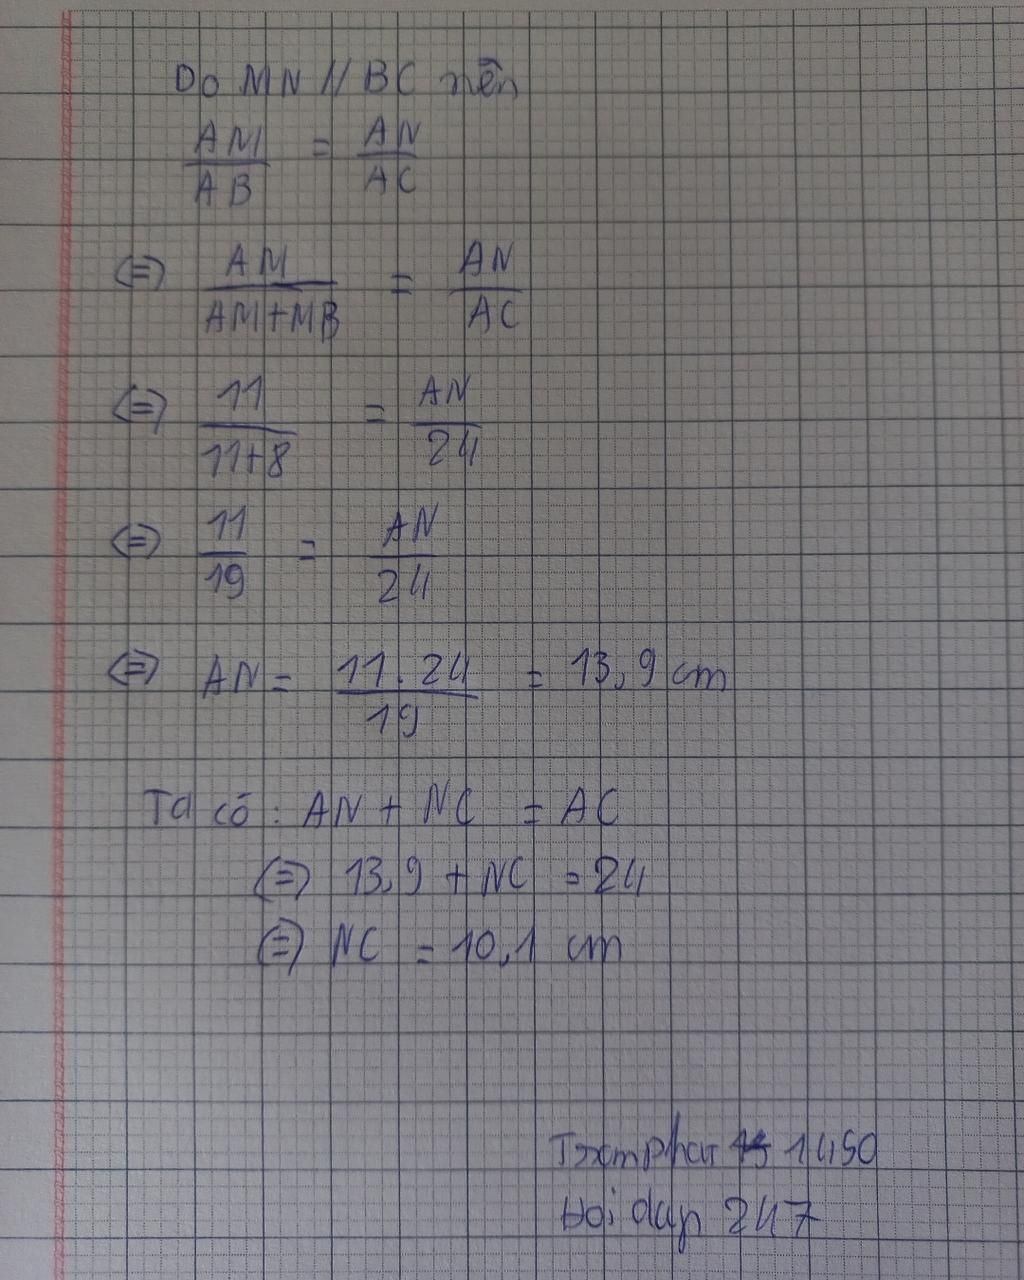 Do MN // BC nên
AM/AB = AN/AC
<=> AM/(AM+MB) = AN/AC
<=> 11/(11+8) = AN/24
<=> 11/19 = AN/24
<=> AN = (11.24)/19 = 13,9 cm
Ta có: AN + NC = AC
<=> 13,9 + NC = 24
<=> NC = 10,1 cm
1450
Hoi dap 247